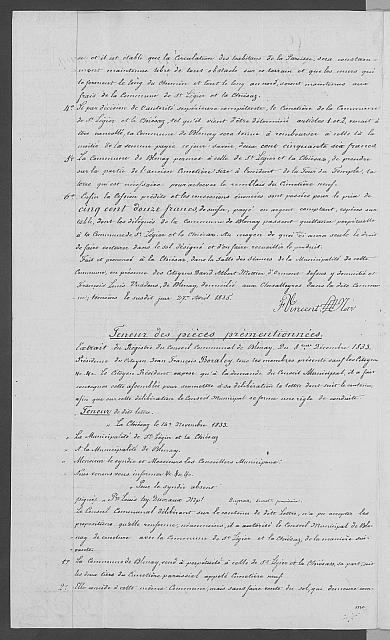 se et il est établi que la Circulation des habitans de la Paroisse, sera constam-
ment maintenue libre de tout obstacle sur ce terrain et que les murs qui
le forment le long du Chemin et tout le long au nord, seront maintenus aux
frais de la Commune de St Légier et la Chiésaz.
4° Si par décision de l'autorité supérieure compétente, le Cimetière de la Commune
de St Légier et la Chiésaz, tel qu'il vient d'être déterminé articles 1 et 2, venait à
être cancellé, la Commune de Blonay sera tenue à rembourser à celle-là la
moitié de la somme payée ce jour savoir deux cent cinquante six francs
5° La Commune de Blonay permet à celle de St Légier et la Chiésaz, de prendre
sur la partie de l'ancien Cimetière sise à l'occident de la Tour du Temple, la
terre qui est nécessaire pour achever le remblais du Cimetière neuf.
6° Enfin la Cession prédite et les concessions énoncées sont passées pour le prix de
cinq cent douze francs de Suisse, payé en argent comptant, espèces au
table, dont les délégués de la Commune de Blonay passent quittance perpétuelle
à la Commune de St Légier et la Chiésaz. Au moyen de quoi aura seule le droit
de faire enterrer dans le sol désigné et d'en faire recueillir le produit.
Fait et prononcé à la Chiésaz, dans la Salle des séances de la Municipalité de cette
Commune, en présence des Citoyens David Albert Mottier d'Ormont dessus y domicilié et
François Louis de Blonay, domicilié aux Chevalleyres dans la dite Com-
mune; témoins le susdit jour 27e Avril 1835.
F Vincent Not
Teneur des pièces prémentionnées.
Extrait du Registre du Conseil Communal de Blonay, Du 8eme Décembre 1833.
Présidence du Citoyen Jean François Boraley, tous les membres présents sauf les Citoyens
&. &. Le Citoyen Président expose qu'à la demande du Conseil Municipal, il a fait
convoquer cette assemblée pour soumettre à sa délibération la lettre dont suit le contenu,
afin que sur cette délibération le Conseil Municipal se forme une règle de conduite.
Teneur de dite lettre.
" La Chiésaz le 14e Novembre 1833.
" La Municipalité de St Légier et la Chiésaz
" A la Municipalité de Blonay.
" Monsieur le syndic et Messieurs les Conseillers Municipaux.
" Nous venons vous informer &. &. &.
" Pour le syndic absent
signés " Ph Louis Mpl
Le Conseil Communal délibérant sur le contenu de dite lettre, n'a pu accepter les
propositions qu'elle renferme, néanmoins, il a autorisé le Conseil Municipal de Blo-
nay de conclure avec la Commune de St Légier et la Chiésaz, de la manière sui-
vante.
1° La Commune de Blonay, vend à perpétuité à celle de St Légier et la Chiésaz, sa part sur
les deux tiers du Cimetière paroissial appelé Cimetière neuf.
2° Elle accorde à cette même Commune, mais sans faire vente du sol, qui demeure com-
me